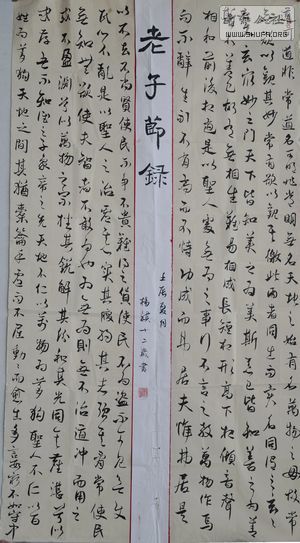 道非常道名可名非常名無名天地之始有名萬物之母故常
欲以觀其妙常有欲以觀其徼此兩者同出而異名同謂之玄
玄眾妙之門天下皆知美之為美斯惡已皆知善之為善
故有無相生難易相成長短相形高下相傾音聲
相和前後相隨是以聖人處無為之事行不言之教萬物作焉
而不辭生而不有為而不恃功成而弗居夫惟弗居是
老子節錄
壬辰夏月
楊 十二歲書
以不去不尚賢使民不爭不貴難得之貨使民不為盜不見可欲使
民心不亂是以聖人之治虛其心實其腹弱其志強其骨常使民
無知無欲使夫智者不敢為也為無為則無不治道沖而用之
或不盈淵兮似萬物之宗挫其銳解其紛和其光同其塵湛兮似
或存吾不知誰之子象帝之先天地不仁以萬物為芻狗聖人不仁以百
姓為芻狗天地之間其猶橐籥乎虛而不屈動而愈出多言數窮不如守中
WWW.SHUFA.ORG